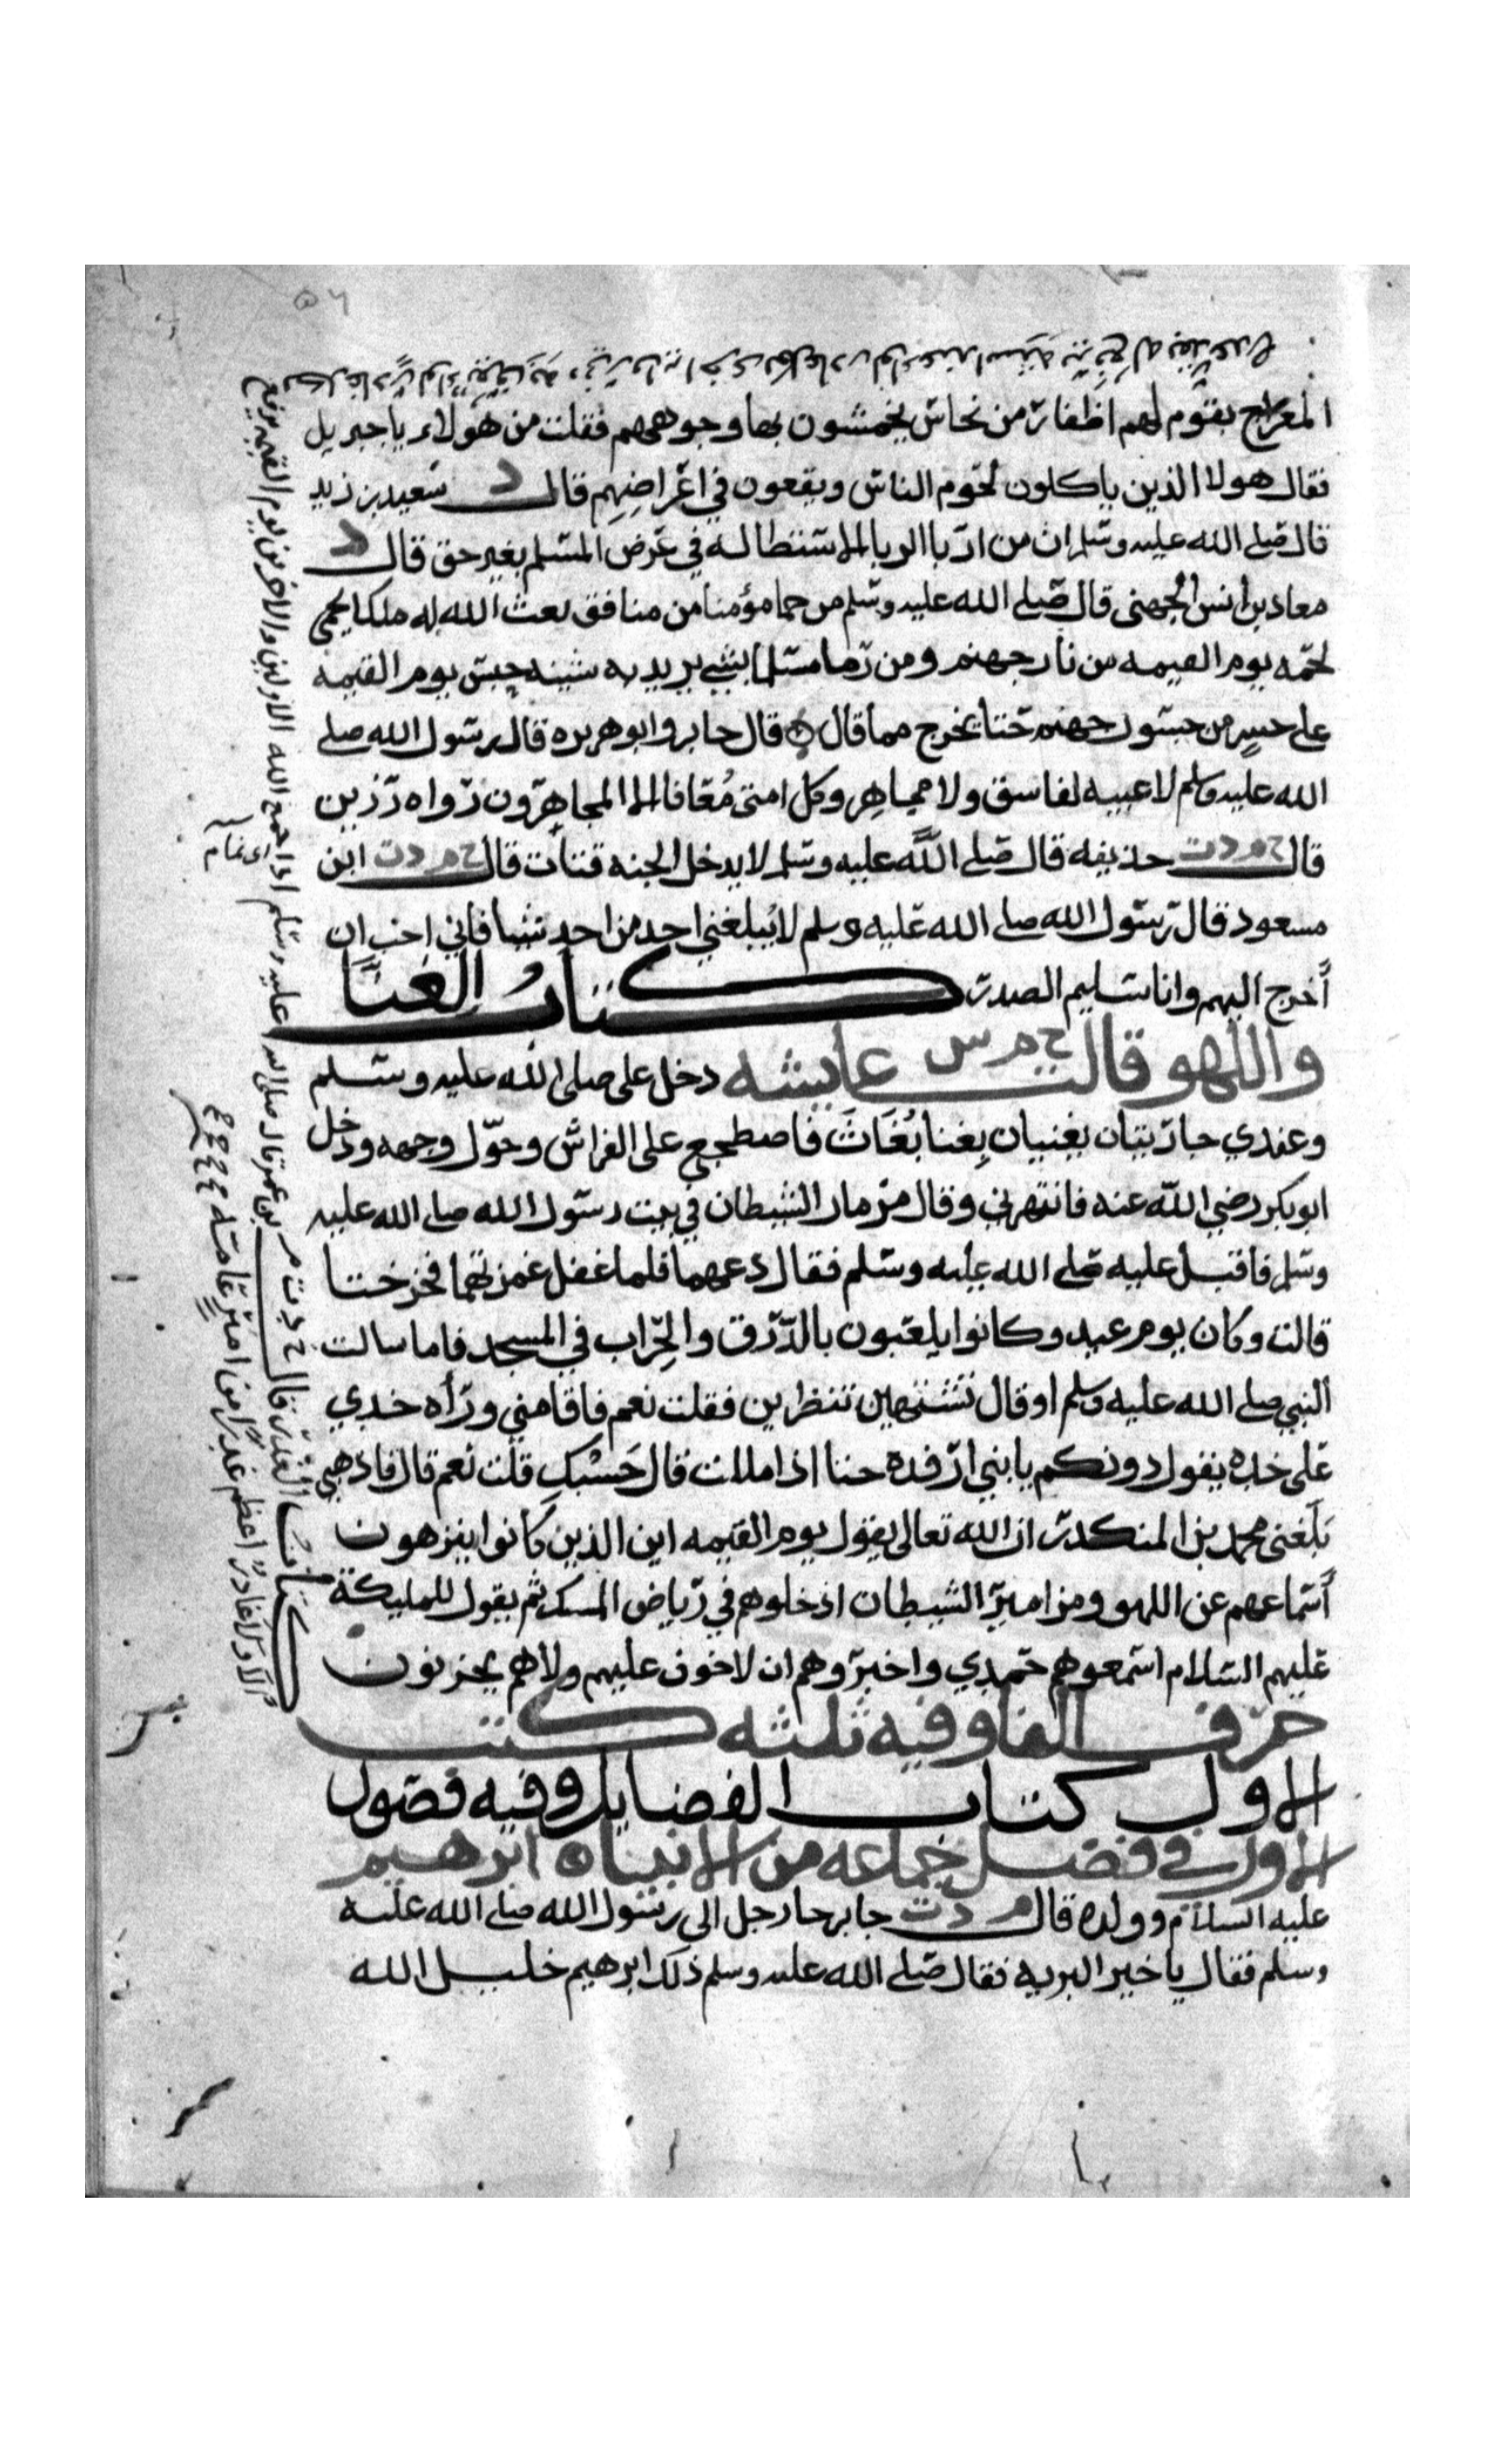 المعراج بقوم لهم اظفار من نحاس يخمشون بها وجوههم فقلت من هولاء يا جبريل
فقال هولا الذين ياكلون لحوم الناس ويقعون في اعراضهم قال د سعيد بن زيد
قال صلى الله عليه وسلم ان من اربا الربا الاستطالة في عرض المسلم بغير حق قال د
معاد بن انس الجهنى قال صلى الله عليه وسلم من حما مؤمنا من منافق بعث الله له ملكا يحمي
لحمه يوم القيمه من نار جهنم ومن رما مسلما بشي يريد به شينه حبس يوم القيمه
على جسر من جسور جهنم حتا يخرج مما قال قال جابر وابو هريره قال رسول الله صلى
الله عليه وسلم لا غيبه لفاسق ولا مجاهر وكل امتى مُعافا الا المجاهرون رواه رزين
قال خ م د ت حذيفه قال صلى اللَّه عليه وسلم لا يدخل الجنه قتات قال خ م د ت ابن
مسعود قال رسول الله صلى الله عليه وسلم لا يبلغني احد من احد شيا فاني احب ان
أخرج اليهم وانا سليم الصدر كتابُ الغنا
واللهو قالت خ م س عايشه دخل على صلى الله عليه وسلم
وعندي جاريتان يغنيان بِغنا بُغَاثَ فاضطجع على الفراش وحوّل وجهه ودخل
ابو بكر رضي اللّه عنه فانتهرني وقال مزمار الشيطان في بيت رسول الله صلى الله عليه
وسلم فاقبل عليه صلى الله عليه وسلم فقال دعهما فلما غفل غمزتهما فخرجتا
قالت وكان يوم عيد وكانوا يلعبون بالدّرق والحِراب في المسجد فاما سالت
النبي صلى الله عليه وسلم او قال تشتهين تنظرين فقلت نعم فاقامني ورأه خدي
على خده يقول دونكم يا بني ارفده حتا اذا مللت قال حَسْبكِ قلت نعم قال فاذهبي
بلَغنى محمد بن المنكدر ان الله تعالى يقول يوم القيمه اين الذين كانوا ينزهون
أسماعهم عن اللهو ومزامير الشيطان ادخلوهم في رياض المسك ثم يقول للمليكة
عليهم السلام اسمعوهم حمدي واخبروهم ان لا خوف عليهم ولا هم يحزنون
حرف الفا وفيه ثلثه كتب
الاول كتاب الفضايل وفيه فصول
الاول في فضل جماعه من الانبياء ابرهيم
عليه السلام وولده قال م د ت جابر جا رجل الى رسول الله صلى الله عليه
وسلم فقال يا خير البريه فقال صلى الله عليه وسلم ذلك ابرهيم خليل الله
اى نمام
كتاب الغدر قال خ م د ت بن عمر قال صلى الله عليه وسلم اذا جمع الله الاولين والاخرين يوم القيمه يرفع
الا ولا غادر اعظم غدرا من امير عامة